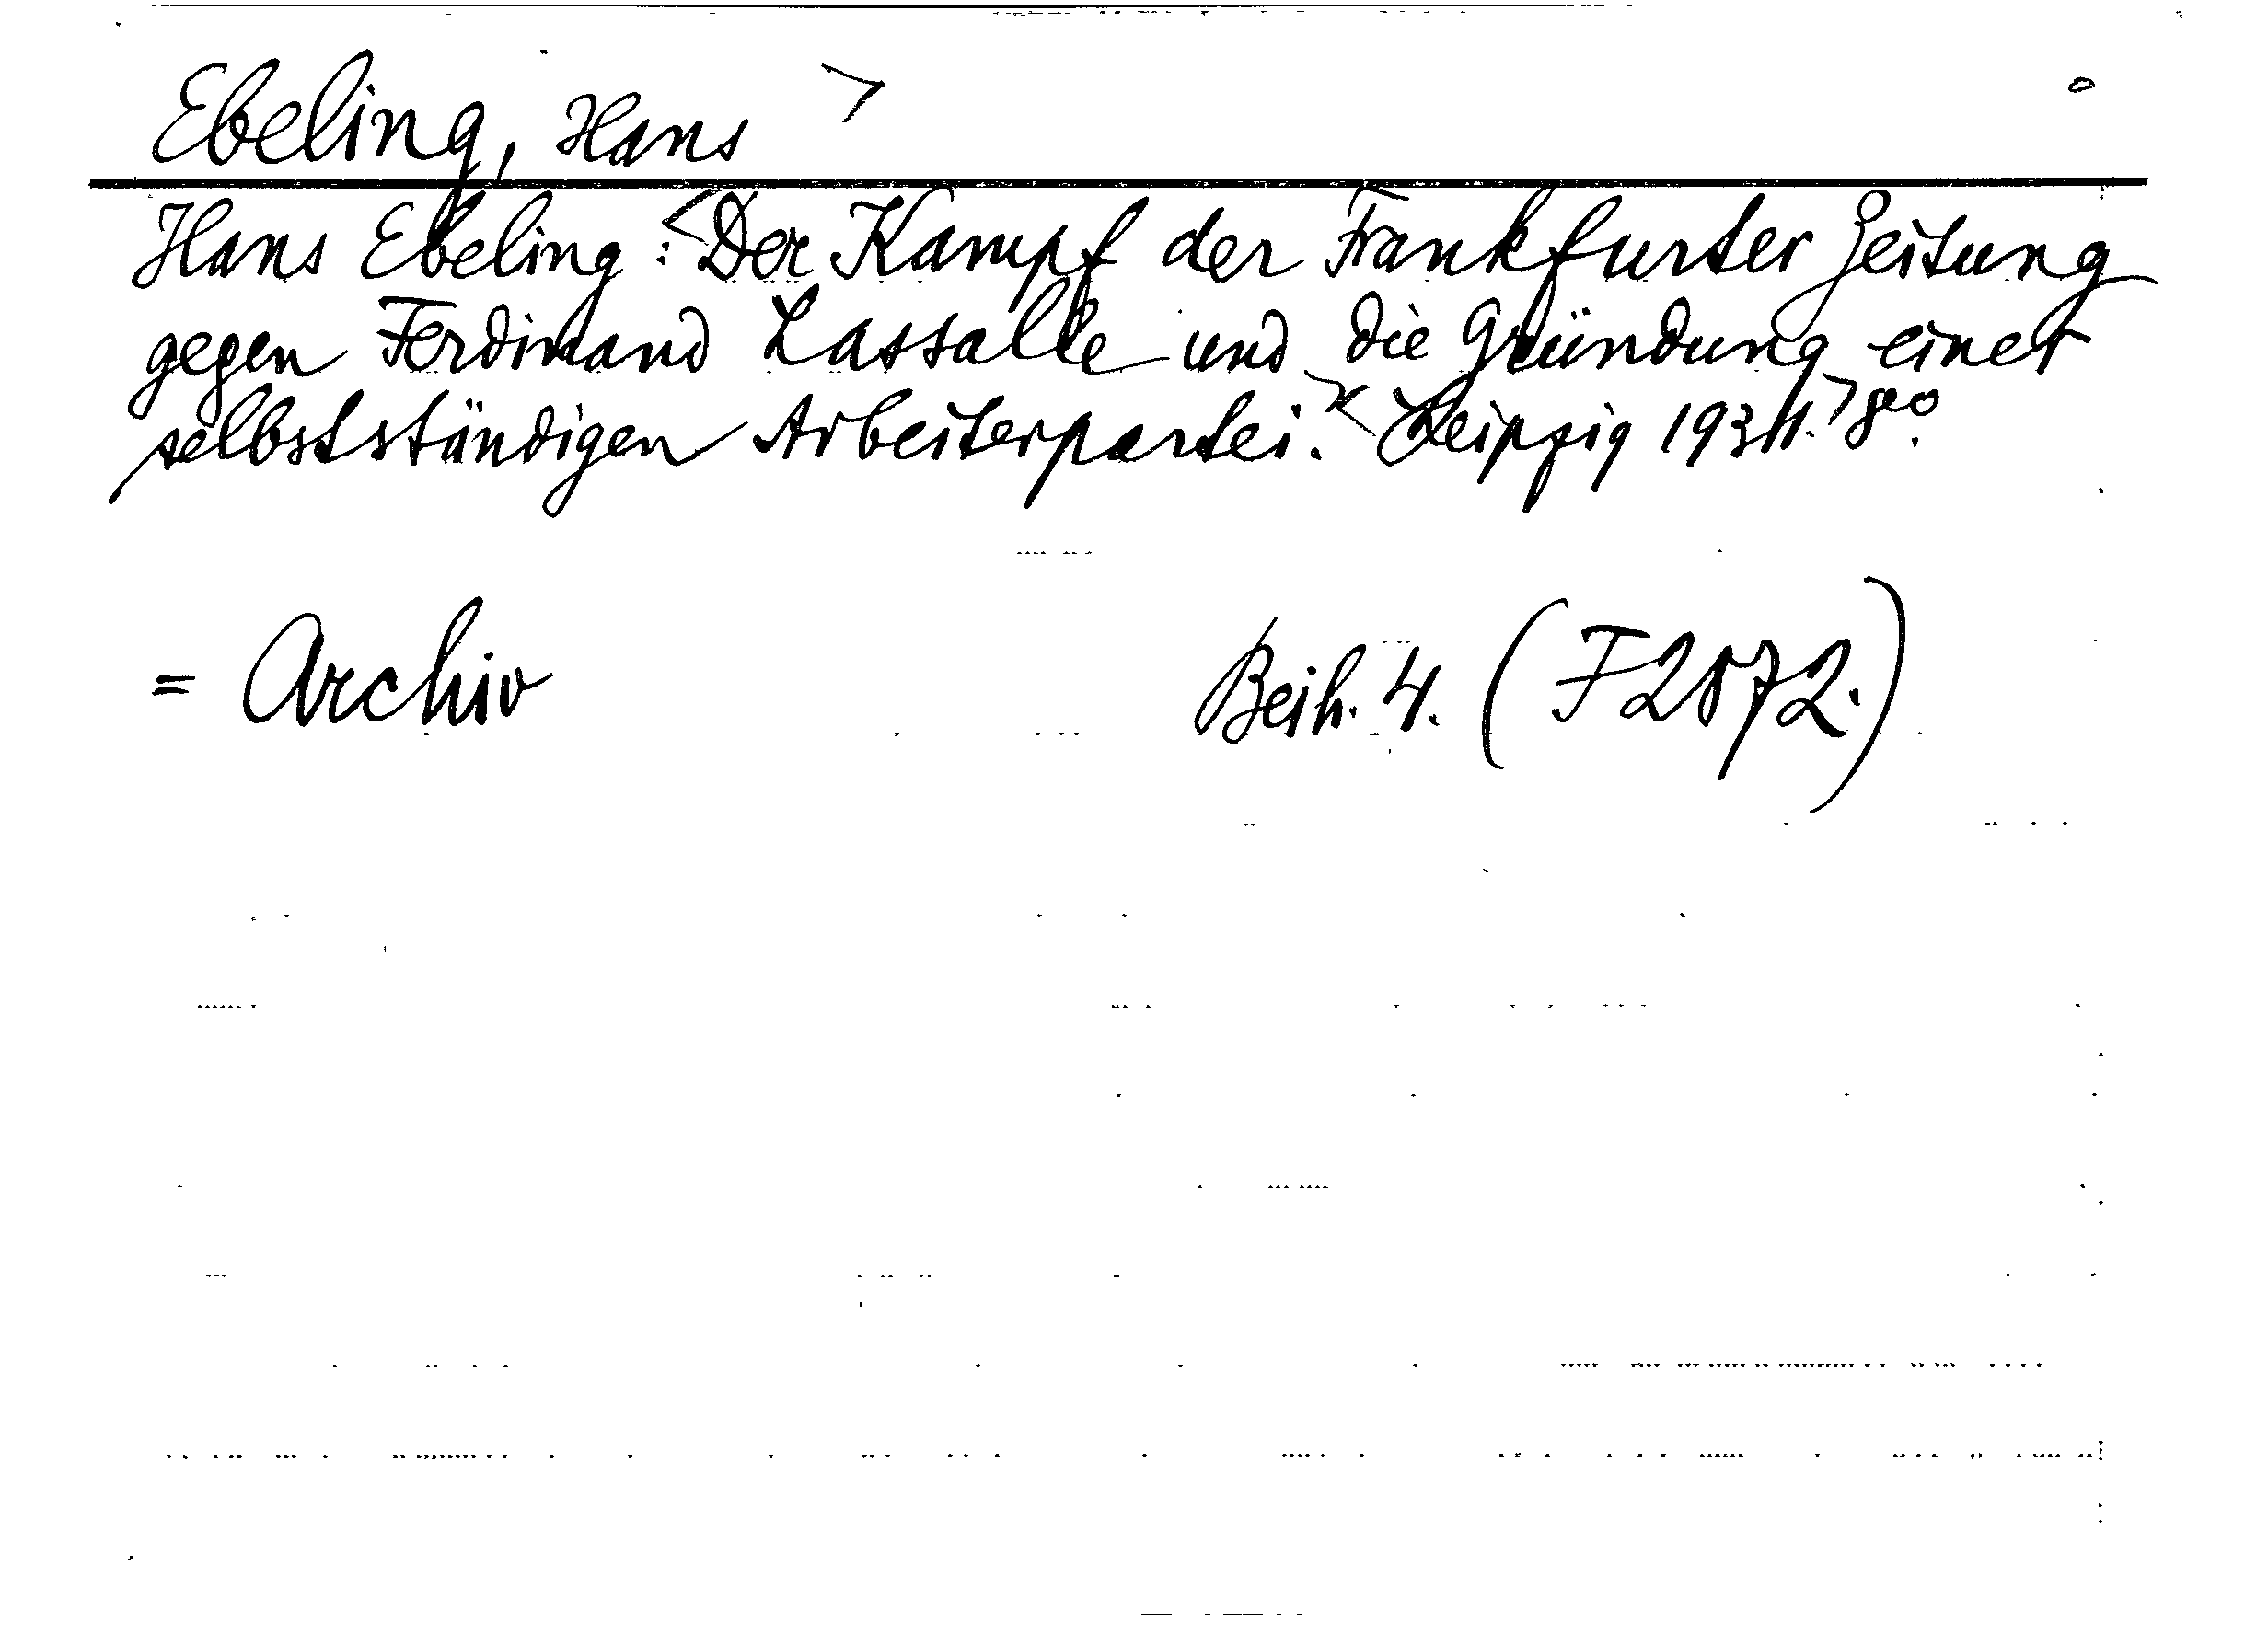 Ebeling, Hans >
Hans Ebeling: <Der Kampf der Frankfurter Zeitung
gegen Ferdinand Lassalle und die Gründung einer
selbstständigen Arbeiterpartei.>< Leipzig 1931.> 8°.
= Archiv Beih. 4. (F2872.)